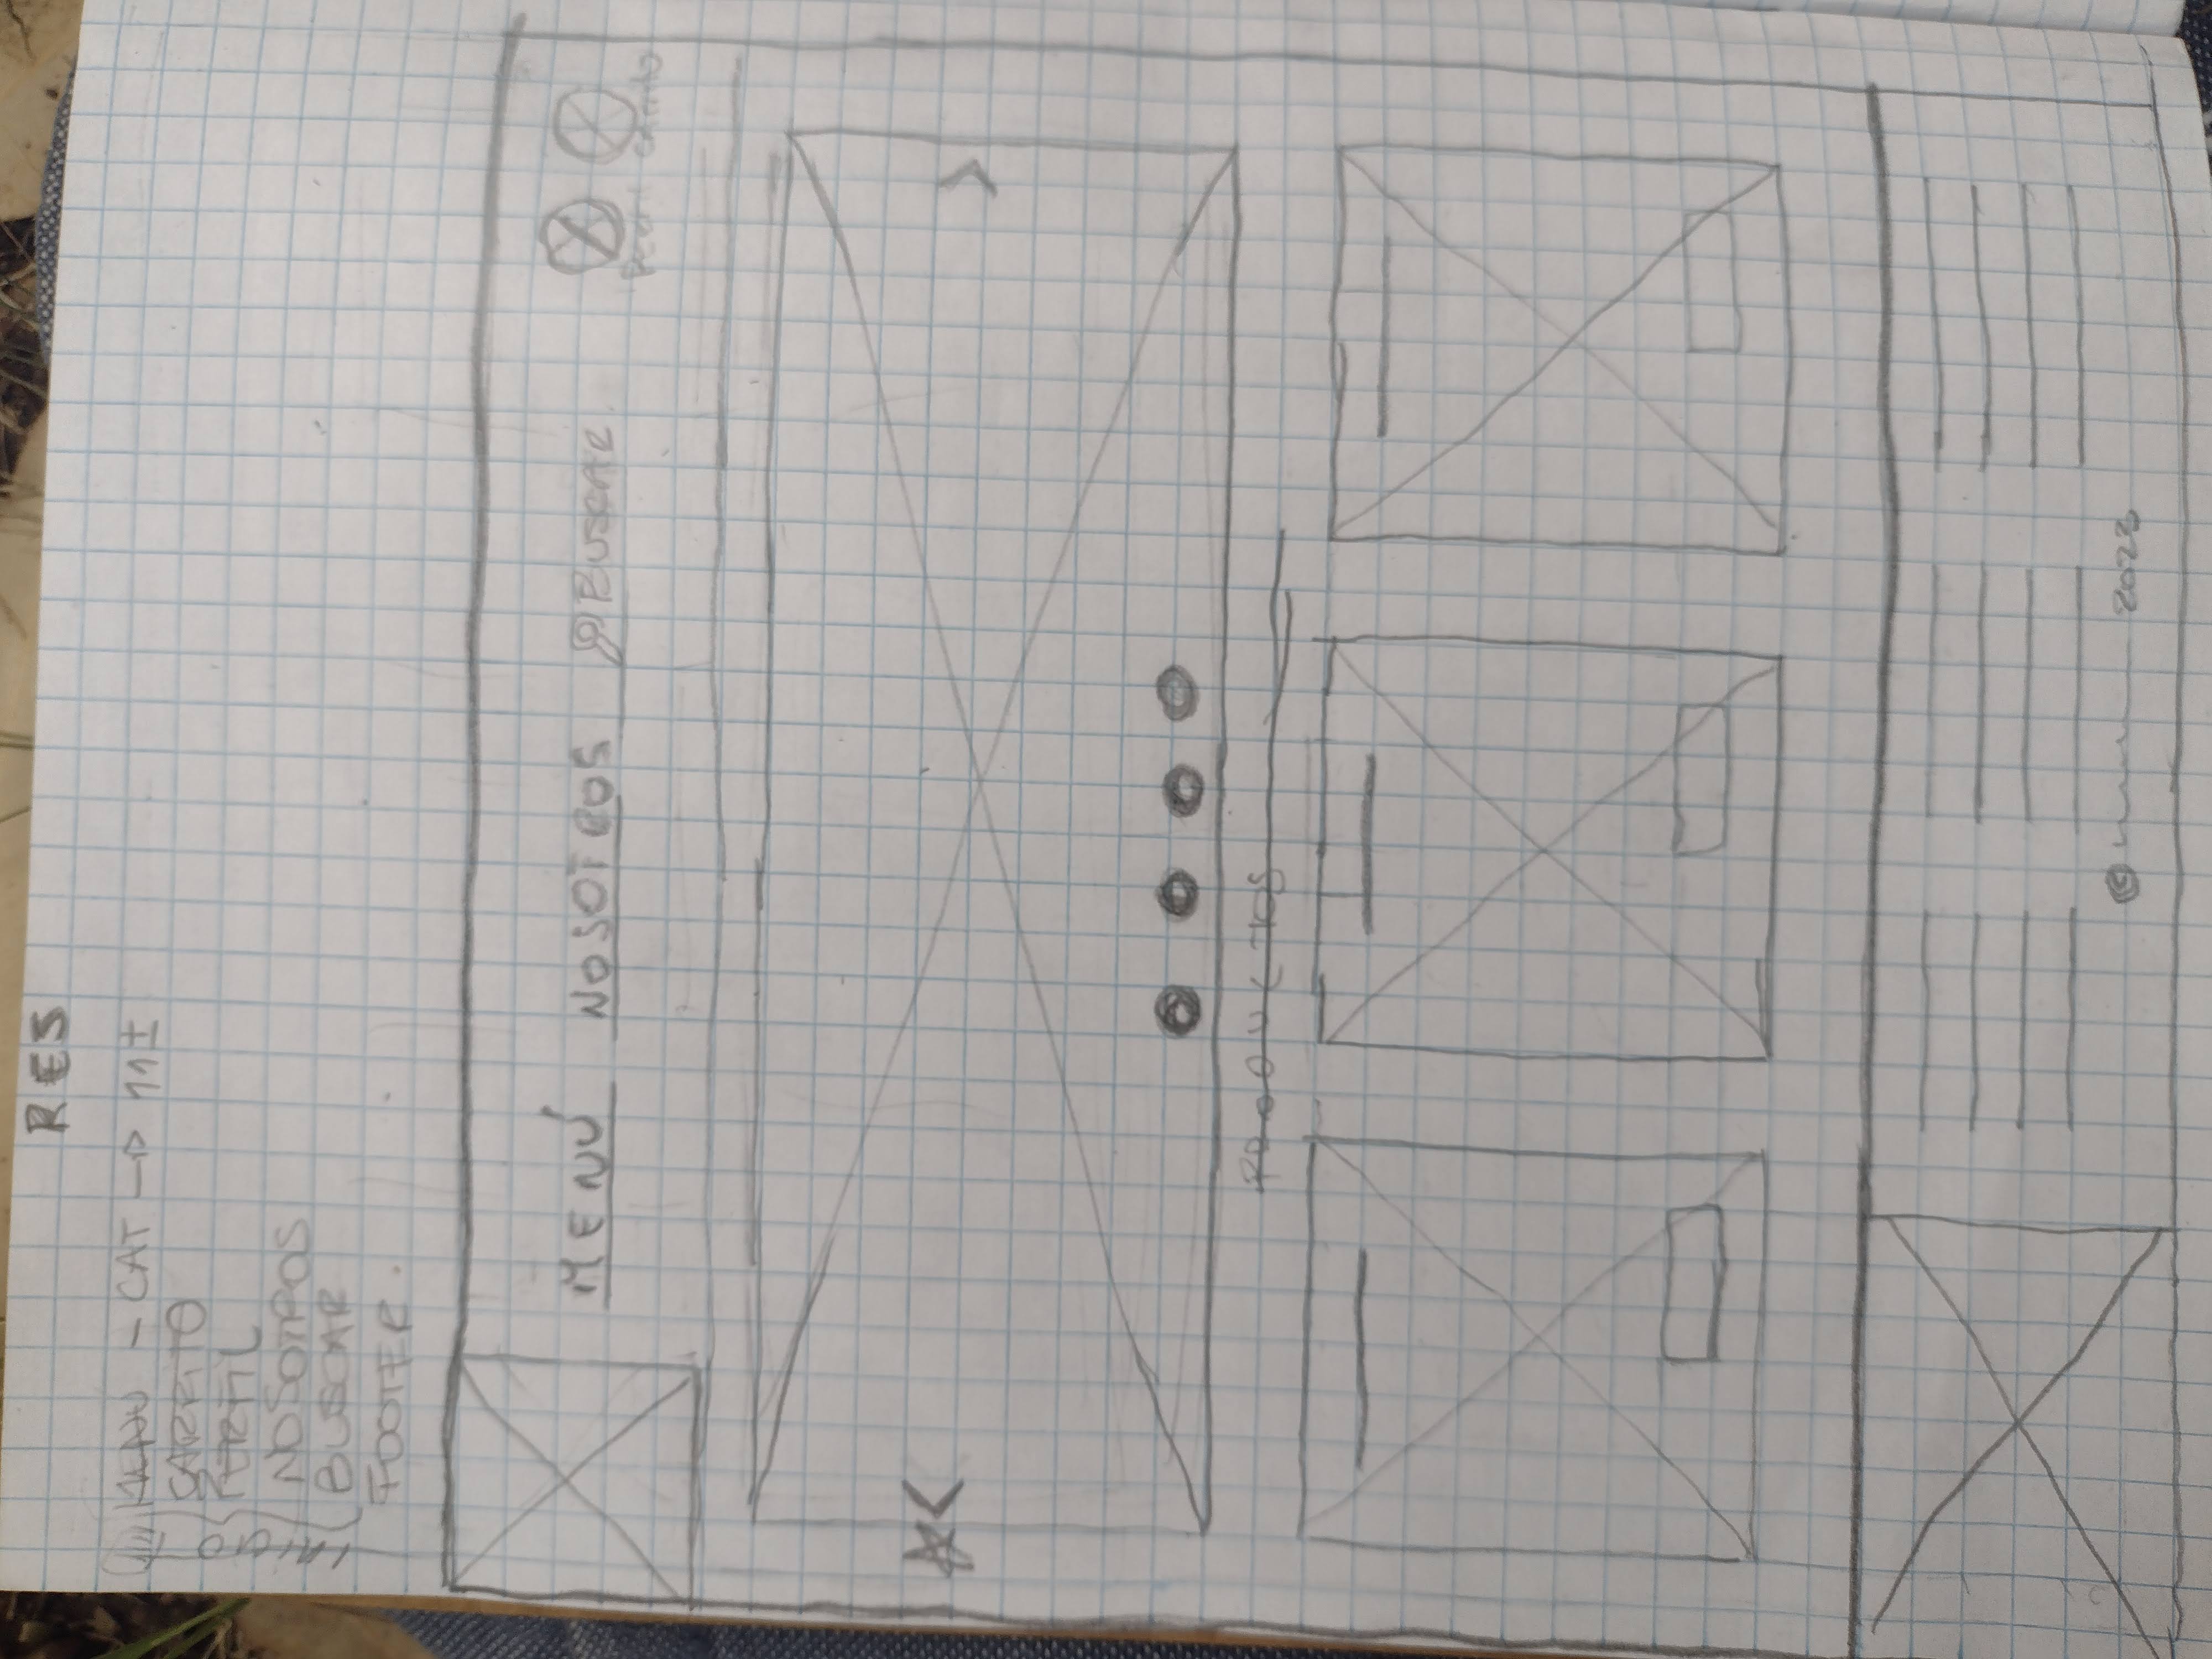 RES
MENU - CAT → 11±
CARRITO
PERFIL
NOSOTROS
BUSCAR
FOOTER.
MENÚ NOSOTROS BUSCAR
Perfil Carrito
< >
PRODUCTOS
© 2023